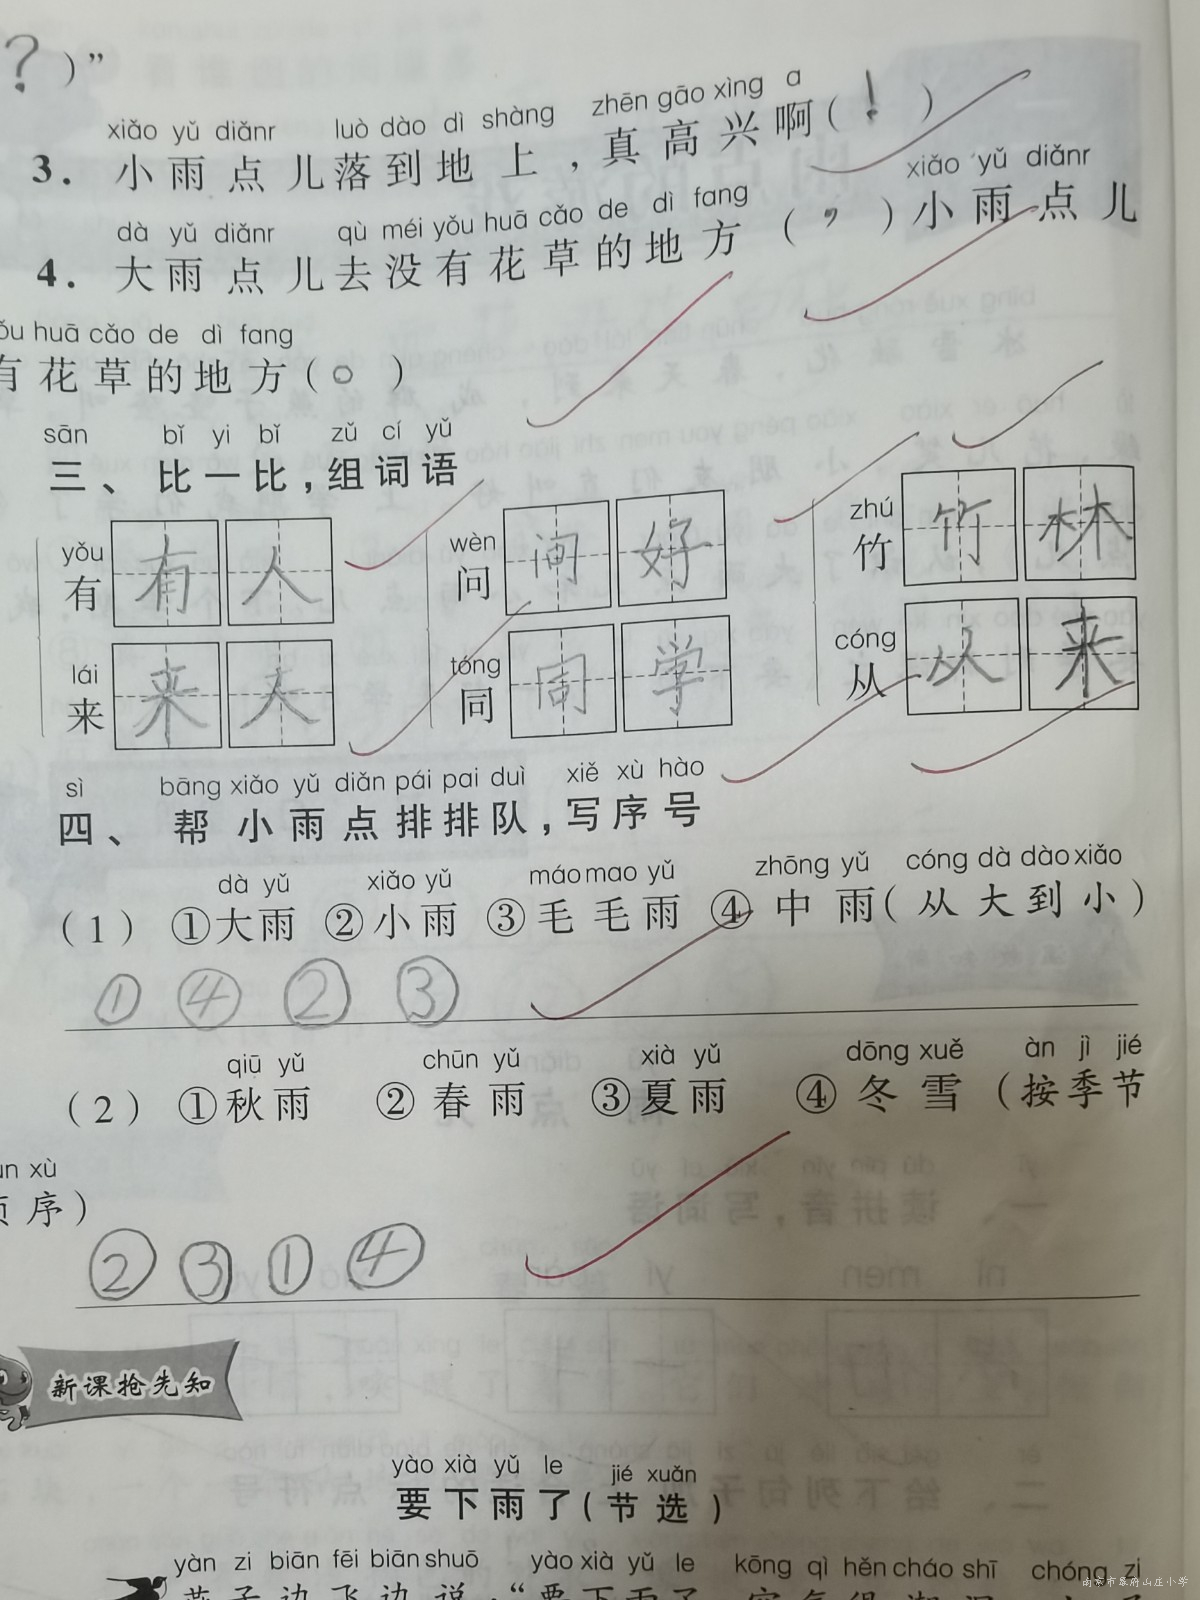 ？）”
xiǎo yǔ diǎnr luò dào dì shàng zhēn gāo xìng a
3．小雨点儿落到地上，真高兴啊（！）
dà yǔ diǎnr qù méi yǒu huā cǎo de dì fang xiǎo yǔ diǎnr
4．大雨点儿去没有花草的地方（，）小雨点儿
ǒu huā cǎo de dì fang
有花草的地方（。）
sān bǐ yi bǐ zǔ cí yǔ
三、比一比，组词语
yǒu wèn zhú
有 有人 问 问好 竹 竹林
lái tóng cóng
来 来天 同 同学 从 从来
sì bāng xiǎo yǔ diǎn pái pai duì xiě xù hào
四、帮小雨点排排队，写序号
dà yǔ xiǎo yǔ máo mao yǔ zhōng yǔ cóng dà dào xiǎo
（1）①大雨 ②小雨 ③毛毛雨 ④中雨（从大到小）
① ④ ② ③
qiū yǔ chūn yǔ xià yǔ dōng xuě àn jì jié
（2）①秋雨 ②春雨 ③夏雨 ④冬雪（按季节
un xù
序）
② ③ ① ④
新课抢先知
yào xià yǔ le jié xuǎn
要下雨了（节选）
yàn zi biān fēi biān shuō yào xià yǔ le kōng qì hěn cháo shī chóng zi
燕子边飞边说，“要下雨了
南京市幕府山庄小学